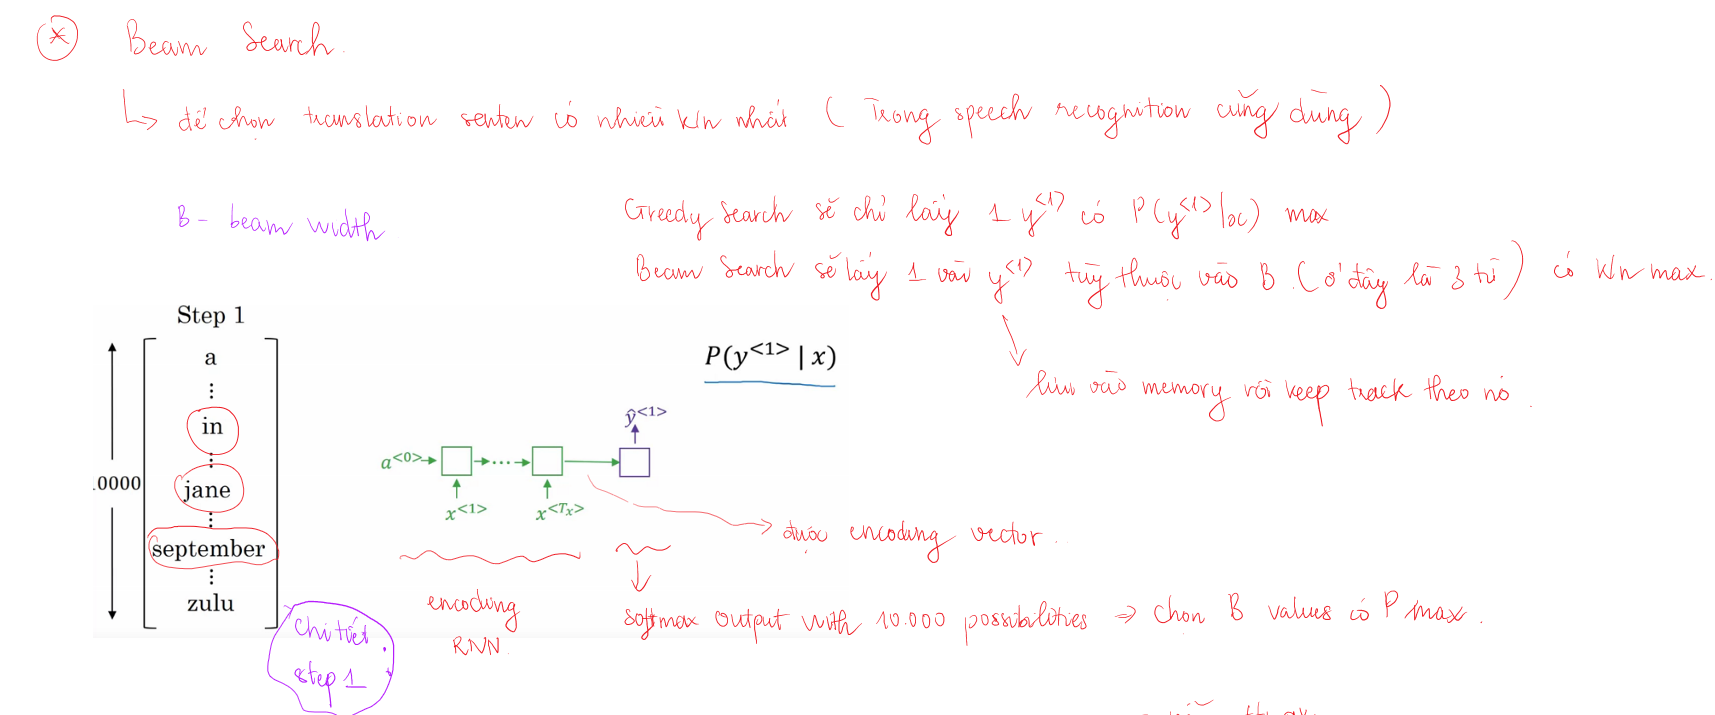 * Beam Search.
↳ để chọn translation senten có nhiều k/n nhất ( Trong speech recognition cũng dùng )
B - beam width
Greedy Search sẽ chỉ lấy 1 y<1> có P(y<1>|x) max
Beam Search sẽ lấy 1 vài y<1> tùy thuộc vào B. (ở đây là 3 từ) có k/n max.
lưu vào memory rồi keep track theo nó.
Step 1
a
⋮
in
⋮
jane
⋮
september
⋮
zulu
.0000
P(y<1> | x)
ŷ<1>
a<0>
x<1>
x<Tx>
được encoding vector.
encoding
RNN.
softmax output with 10.000 possibilities => chọn B values có P max.
Chi tiết
step 1